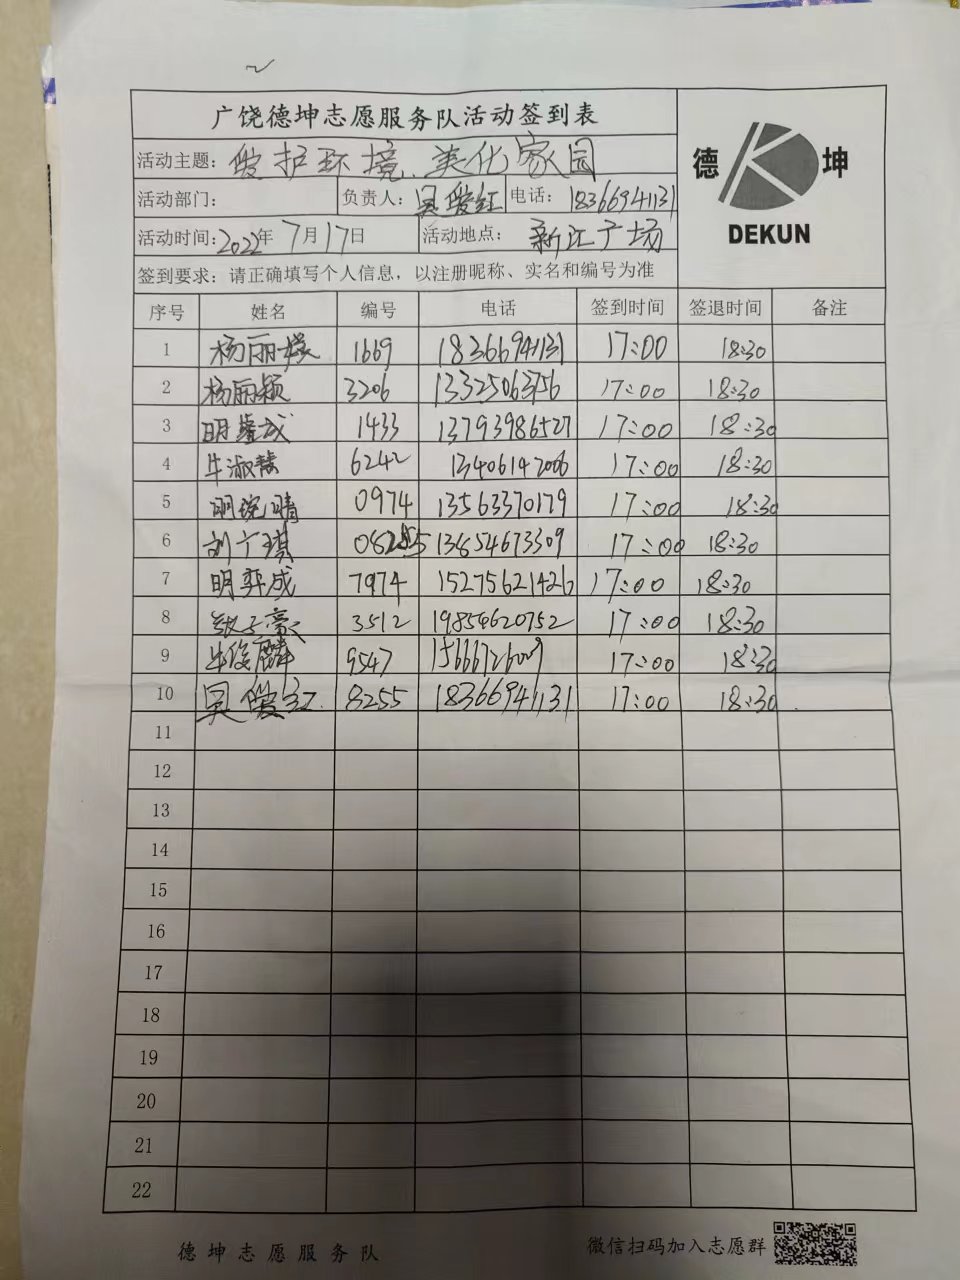 广饶德坤志愿服务队活动签到表
德 坤
DEKUN
活动主题：爱护环境、美化家园
活动部门： 负责人：吴爱红 电话：18366941131
活动时间：2022年7月17日 活动地点：新汇广场
签到要求：请正确填写个人信息，以注册昵称、实名和编号为准
序号 姓名 编号 电话 签到时间 签退时间 备注
1 杨丽 1669 18366941131 17:00 18:30
2 杨丽颖 3206 13325063756 17:00 18:30
3 明 成 1433 13793986527 17:00 18:30
4 牛淑慧 6242 13406142006 17:00 18:30
5 明 晴 0974 13563370179 17:00 18:30
6 刘广琪 13854673309 17:00 18:30
7 明弈成 7974 15275621426 17:00 18:30
8 张子豪 3512 19854620752 17:00 18:30
9 牛俊麟 9547 15666726009 17:00 18:30
10 吴爱红 8255 18366941131 17:00 18:30
11
12
13
14
15
16
17
18
19
20
21
22
德坤志愿服务队 微信扫码加入志愿群